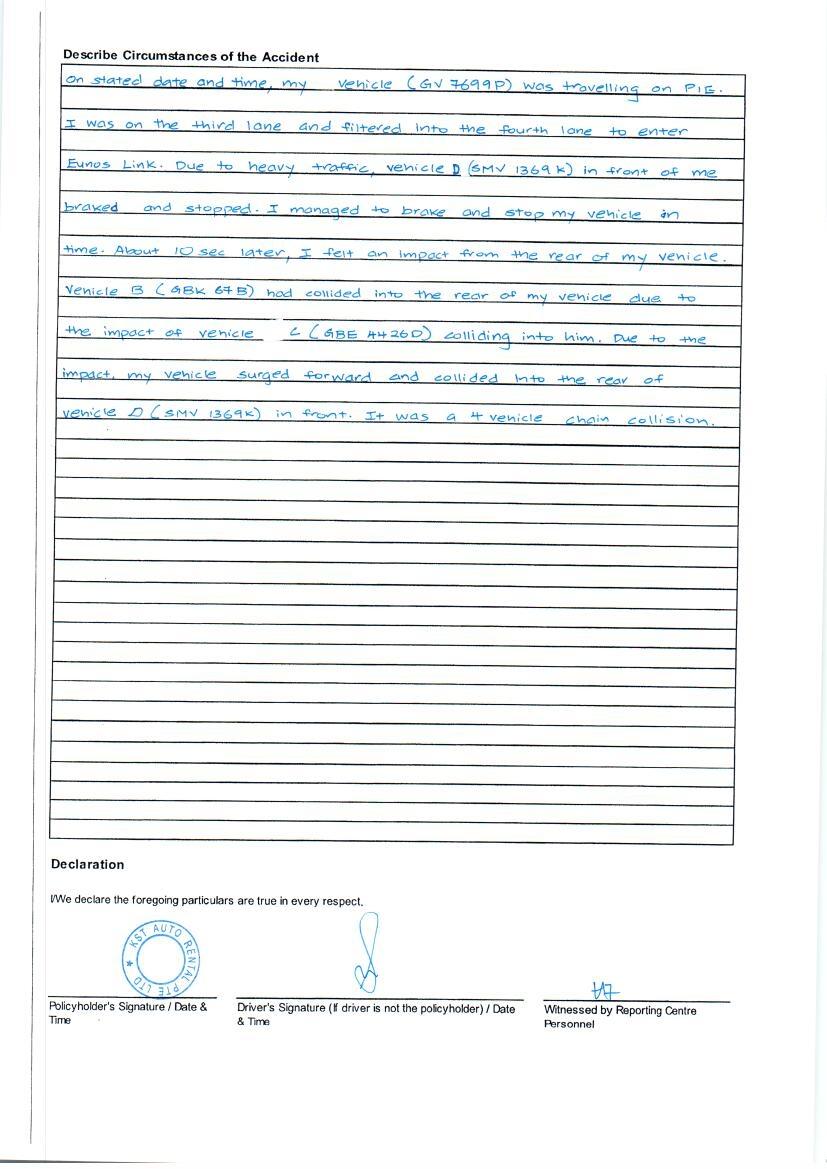 Describe Circumstances of the Accident
On stated date and time, my vehicle (GV 7699P) was travelling on PIE.
I was on the third lane and filtered into the fourth lane to enter
Eunos Link. Due to heavy traffic, vehicle D (SMV 1369K) in front of me
braked and stopped. I managed to brake and stop my vehicle in
time. About 10 sec later, I felt an impact from the rear of my vehicle.
Vehicle B (GBK 67B) had collided into the rear of my vehicle due to
the impact of vehicle C (GBE 4426D) colliding into him. Due to the
impact, my vehicle surged forward and collided into the rear of
vehicle D (SMV 1369K) in front. It was a 4 vehicle chain collision.
Declaration
I/We declare the foregoing particulars are true in every respect.
KST AUTO RENTAL PTE LTD *
Policyholder's Signature / Date &
Time
Driver's Signature (If driver is not the policyholder) / Date
& Time
Witnessed by Reporting Centre
Personnel